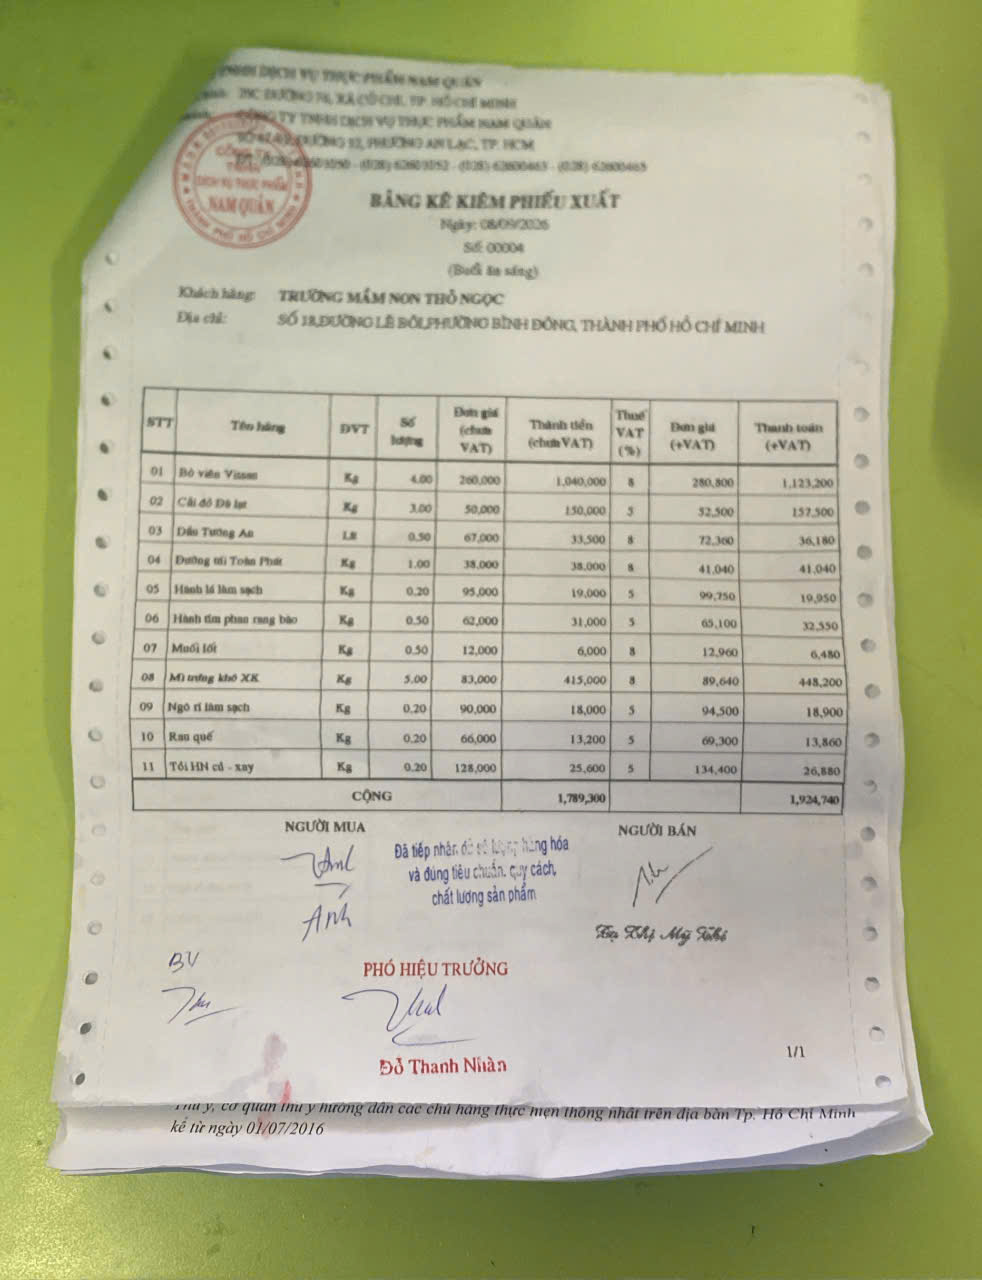 TNHH DỊCH VỤ THỰC PHẨM NAM QUÂN
ĐƯỜNG 76, XÃ CỦ CHI, TP. HỒ CHÍ MINH
CÔNG TY TNHH DỊCH VỤ THỰC PHẨM NAM QUÂN
ĐƯỜNG 32, PHƯỜNG AN LẠC, TP. HCM
(028) 62603152 - (028) 62600463 - (028) 62600463
CÔNG TY
TNHH
DỊCH VỤ THỰC PHẨM
NAM QUÂN
THÀNH PHỐ HỒ CHÍ MINH
BẢNG KÊ KIÊM PHIẾU XUẤT
Ngày: 08/09/2026
Số: 00004
(Buổi ăn sáng)
Khách hàng: TRƯỜNG MẦM NON THỎ NGỌC
Địa chỉ: SỐ 18,ĐƯỜNG LÊ BÔI,PHƯỜNG BÌNH ĐÔNG, THÀNH PHỐ HỒ CHÍ MINH
STT Tên hàng ĐVT Số lượng Đơn giá (chưa VAT) Thành tiền (chưa VAT) Thuế VAT (%) Đơn giá (+VAT) Thanh toán (+VAT)
01 Bò viên Vissan Kg 4.00 260,000 1,040,000 8 280,800 1,123,200
02 Cải đỏ Đà lạt Kg 3.00 50,000 150,000 5 52,500 157,500
03 Dầu Tường An Lít 0.50 67,000 33,500 8 72,360 36,180
04 Đường túi Toàn Phát Kg 1.00 38,000 38,000 8 41,040 41,040
05 Hành lá làm sạch Kg 0.20 95,000 19,000 5 99,750 19,950
06 Hành tím phan rang bào Kg 0.50 62,000 31,000 5 65,100 32,550
07 Muối Iốt Kg 0.50 12,000 6,000 8 12,960 6,480
08 Mì trứng khô XK Kg 5.00 83,000 415,000 8 89,640 448,200
09 Ngò rí làm sạch Kg 0.20 90,000 18,000 5 94,500 18,900
10 Rau quế Kg 0.20 66,000 13,200 5 69,300 13,860
11 Tỏi HN củ - xay Kg 0.20 128,000 25,600 5 134,400 26,880
CỘNG 1,789,300 1,924,740
NGƯỜI MUA NGƯỜI BÁN
Đã tiếp nhận đủ số lượng hàng hóa
và đúng tiêu chuẩn, quy cách,
chất lượng sản phẩm
Anh
BV
PHÓ HIỆU TRƯỞNG
Đỗ Thanh Nhàn
1/1
Thú y, cơ quan thú y hướng dẫn các chủ hàng thực hiện thống nhất trên địa bàn Tp. Hồ Chí Minh
kể từ ngày 01/07/2016